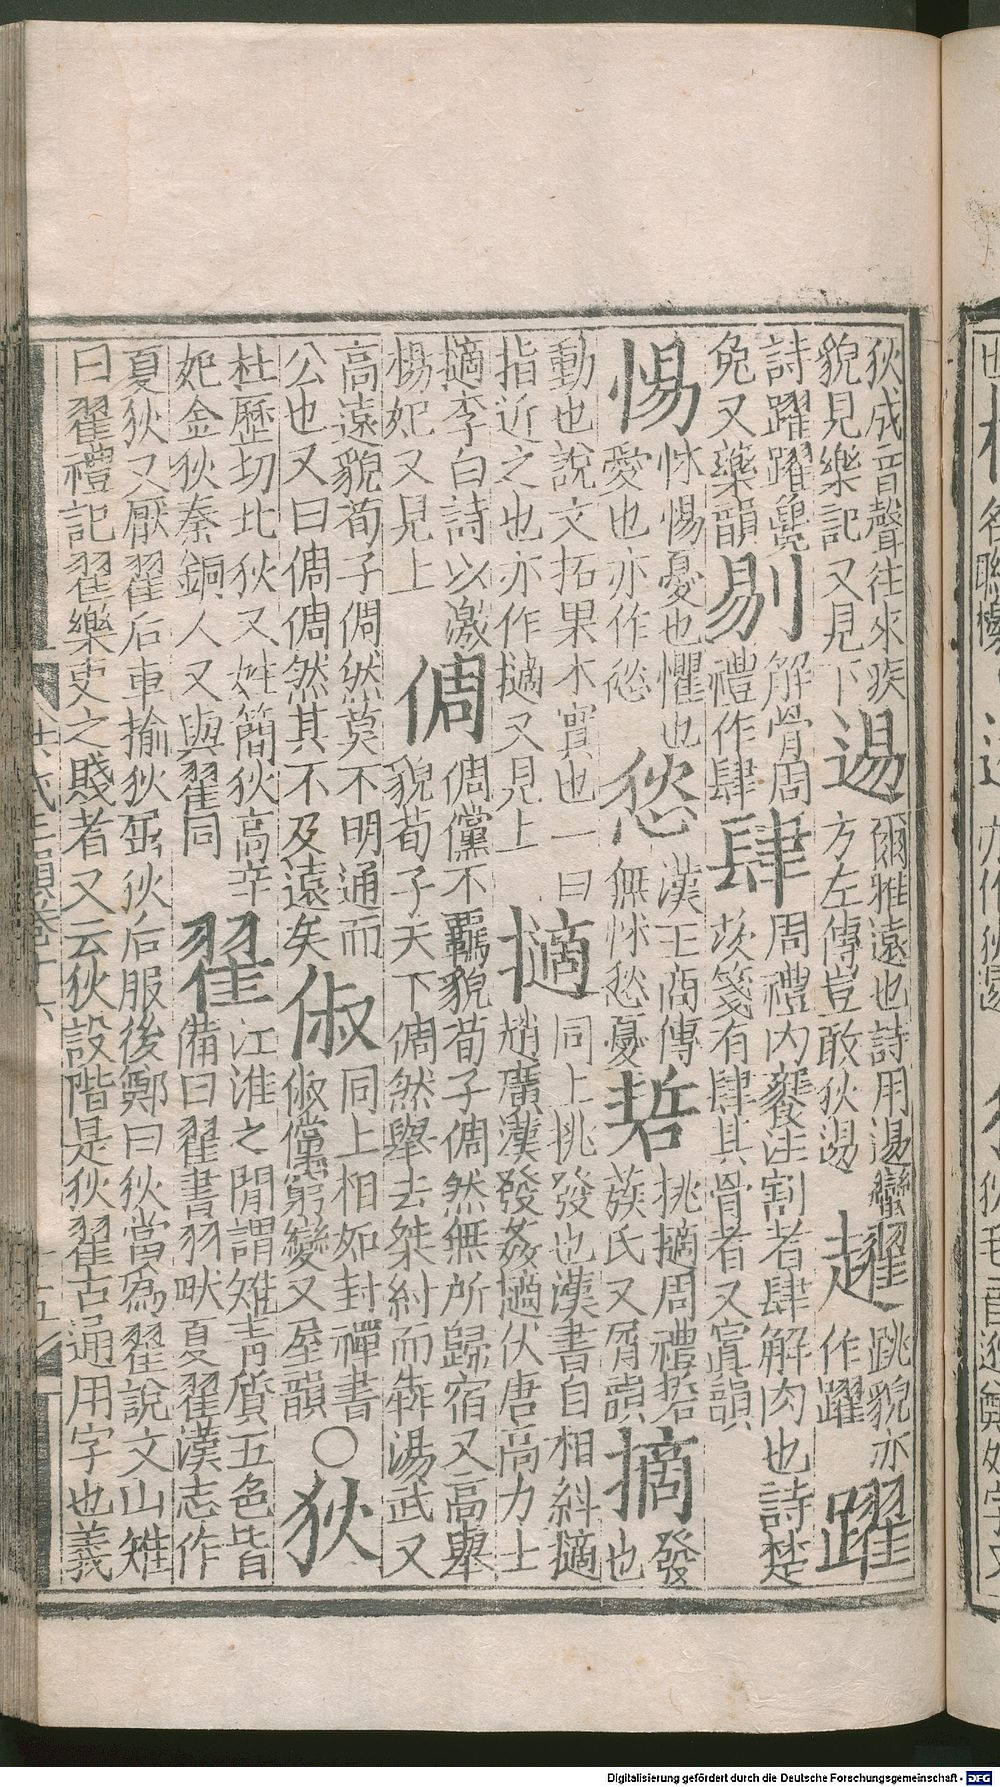 狄成音聲往來疾
貌見樂記又見下
逷
爾雅遠也詩用逷蠻
方左傳豈敢狄逷
趯
跳貌亦
作躍
躍
詩躍躍毚
兔又藥韻
剔
解骨周
禮作肆
肆
周禮内饔注割者肆解肉也詩楚
茨箋有肆其骨者又寘韻
惕
怵惕憂也懼也
愛也亦作悐
悐
漢王商傳
無怵悐憂
硩
挑擿周禮硩
蔟氏又屑韻
摘
發
也
動也說文拓果木實也一曰
指近之也亦作擿又見上
擿
同上挑發也漢書自相糾擿
趙廣漢發姦擿伏唐高力士
擿李白詩以激
楊妃又見上
倜
倜儻不羈貌荀子倜然無所歸宿又高舉
貌荀子天下倜然舉去桀紂而犇湯武又
高遠貌荀子倜然莫不明通而
公也又曰倜倜然其不及遠矣
俶
同上相如封禪書
俶儻窮變又屋韻
〇狄
杜歷切北狄又姓簡狄高辛
妃金狄秦銅人又與翟同
翟
江淮之間謂雉青質五色皆
備曰翟書羽畎夏翟漢志作
夏狄又厭翟后車揄狄屈狄后服後鄭曰狄當為翟說文山雉
曰翟禮記翟樂吏之賤者又云狄設階是狄翟古通用字也義
Digitalisierung gefördert durch die Deutsche Forschungsgemeinschaft - DFG